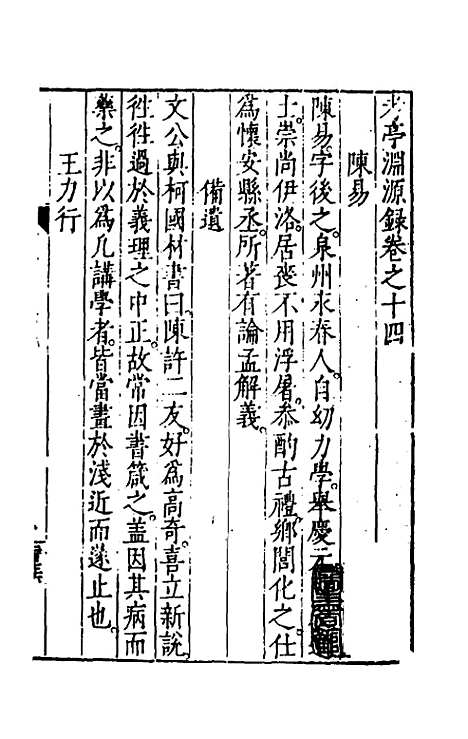 考亭淵源録卷之十四
陳易
陳易字後之泉州永春人自幼力學舉慶元
士崇尚伊洛居喪不用浮屠叅酌古禮鄉閭化之仕
為懷安縣丞所著有論孟解義
備遺
文公與柯國材書曰陳許二友好為高奇喜立新說
徃徃過於義理之中正故常因書箴之盖因其病而
藥之非以為凡講學者皆當畫於淺近而遂止也
王力行